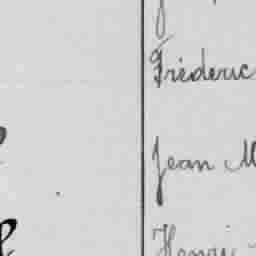 Fréderic
Jean M
Henri